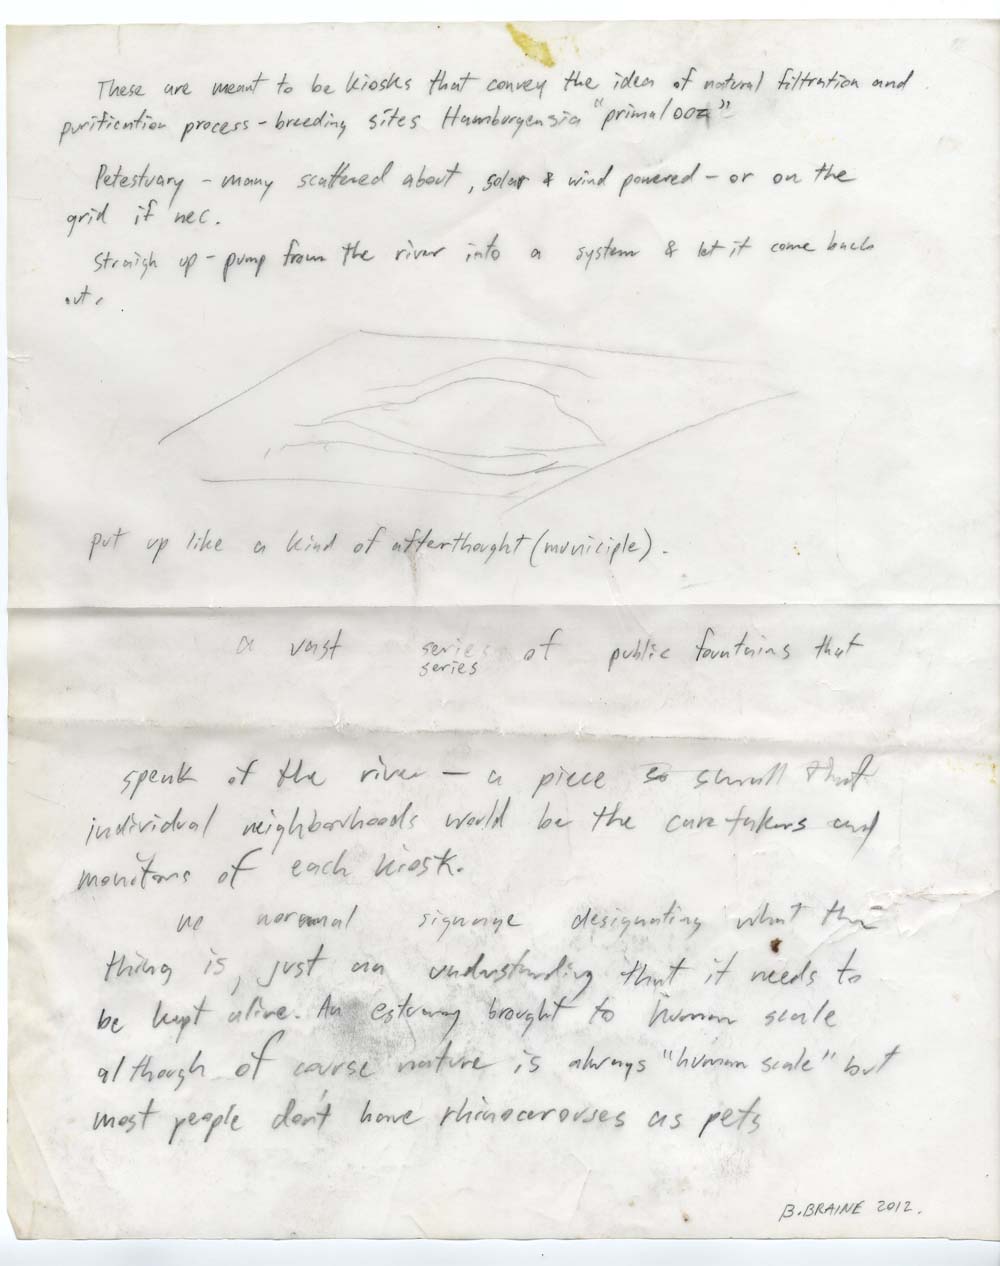 These are meant to be kiosks that convey the idea of natural filtration and
purification process - breeding sites Hamburgensia "primal ooz"
Petestuary - many scattered about, solar & wind powered - or on the
grid if nec.
Straigh up - pump from the river into a system & let it come back
out.
put up like a kind of afterthought (municiple).
a vast series of public fountains that
series
speak of the river - a piece so small that
individual neighborhoods would be the caretakers and
monitors of each kiosk.
no normal signage designating what the
thing is, just an understanding that it needs to
be kept alive. An estuary brought to human scale
although of course nature is always "human scale" but
most people don't have rhinocerouses as pets
B. BRAINE 2012.